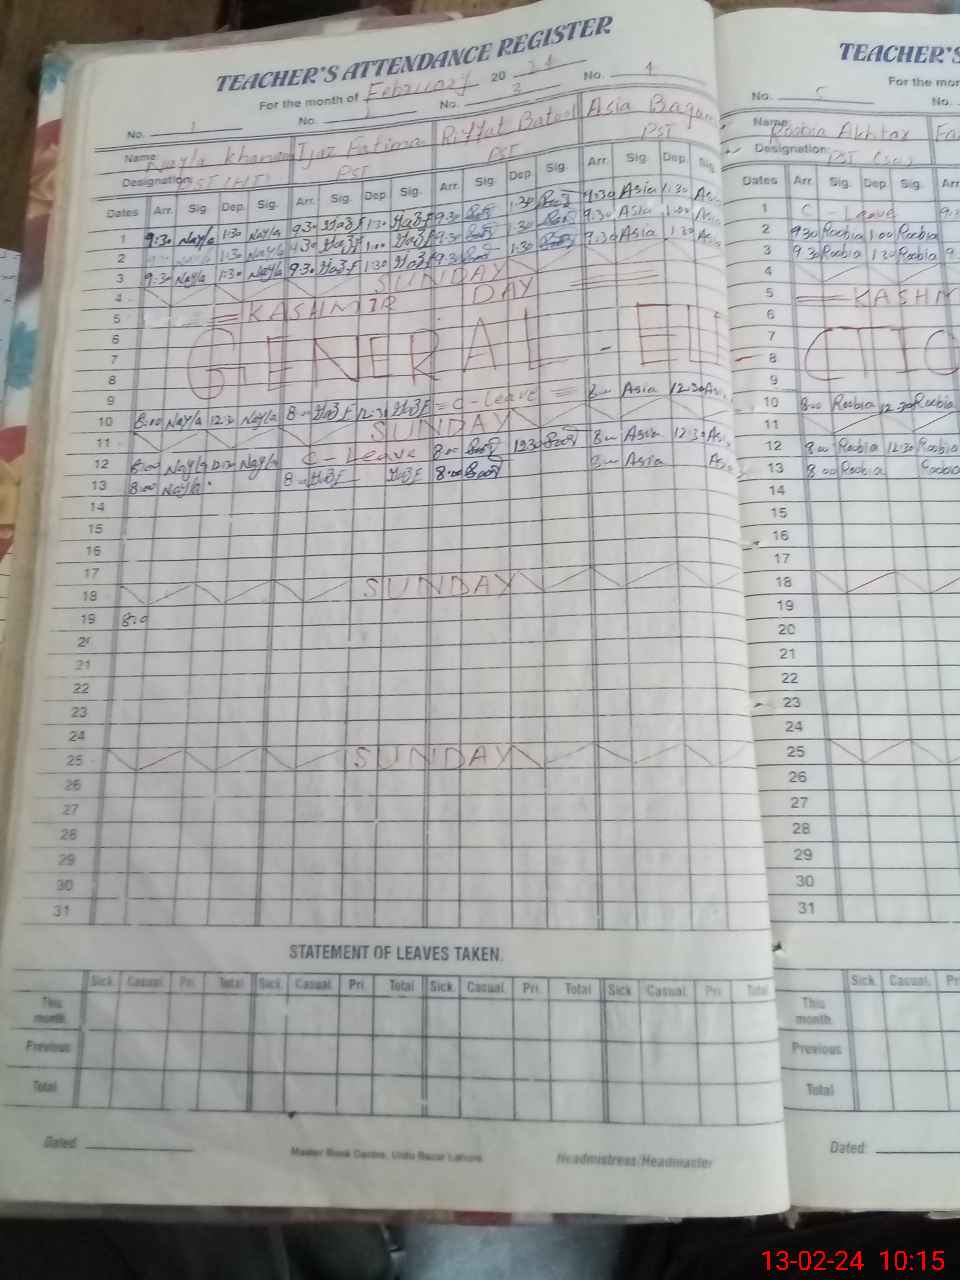 TEACHER'S ATTENDANCE REGISTER
For the month of February 20 24
No. 1 No. No. 3 No. 4
Name Nayla Khanam Ijaz Fatima Riffat Batool Asia Bagam
Designation PST (HT) PST PST PST
Dates Arr. Sig. Dep. Sig. Arr. Sig. Dep. Sig. Arr. Sig. Dep. Sig. Arr. Sig. Dep. Sig.
1 9:30 Nayla 1:30 Nayla 9:30 1:30 9:30 1:30 9:30 Asia 1:30 Asia
2 Nayla 1:30 Nayla 9:30 1:00 9:30 1:30 9:30 Asia 1:00 Asia
3 9:30 Nayla 1:30 Nayla 9:30 1:30 9:30 1:30 9:30 Asia 1:30 Asia
4 SUNDAY
5 = KASHMIR DAY
6
7 GENERAL - ELE
8
9
10 8:00 Nayla 12:30 Nayla 8:00 12:30 = C-Leave = 8:00 Asia 12:30 Asia
11 SUNDAY
12 8:00 Nayla 12:30 Nayla C - Leave 8:00 12:30 8:00 Asia 12:30 Asia
13 8:00 Nayla 8:00 8:00 8:00 Asia Asia
14
15
16
17
18 SUNDAY
19 8:0
20
21
22
23
24
25 SUNDAY
26
27
28
29
30
31
STATEMENT OF LEAVES TAKEN.
Sick. Casual. Pri. Total Sick. Casual. Pri. Total Sick. Casual. Pri. Total Sick Casual. Pri Total
This month.
Previous
Total
Dated:
Master Book Centre, Urdu Bazar Lahore.
Headmistress/Headmaster
TEACHER'S
For the mon
No. 5 No.
Name: Roobia Akhtar Fa
Designation: PST (Sc)
Dates Arr. Sig. Dep. Sig. Arr
1 C - Leave 9:
2 9:30 Roobia 1:00 Roobia
3 9:30 Roobia 1:30 Roobia 9
4
5 = KASHM
6
7 CTIO
8
9
10 8:00 Roobia 12:30 Roobia
11
12 8:00 Roobia 12:30 Roobia
13 8:00 Roobia Roobia
14
15
16
17
18
19
20
21
22
23
24
25
26
27
28
29
30
31
Sick Casual. Pr
This month.
Previous
Total
Dated:
13-02-24 10:15